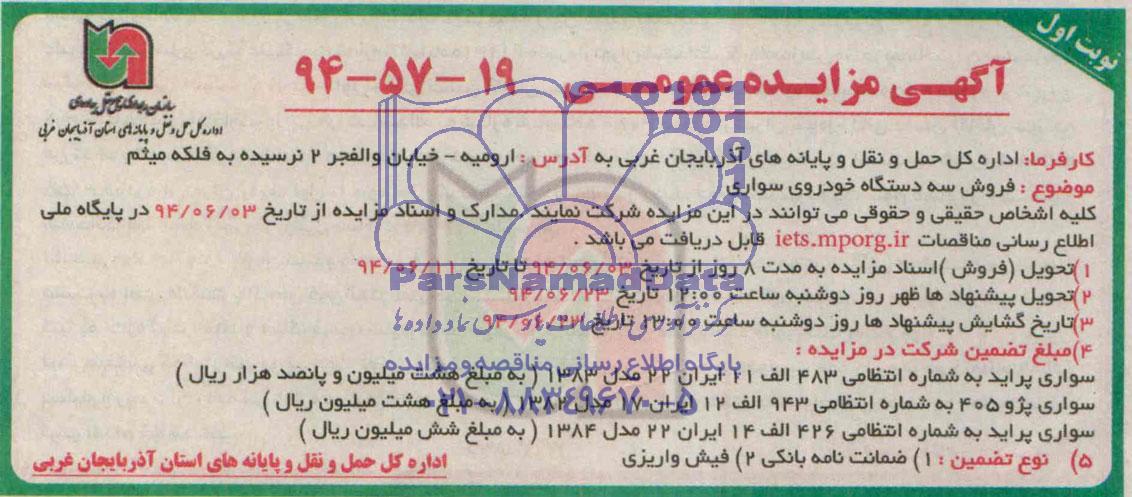 نوبت اول
آگهی مزایده عمومی ۱۹-۵۷-۹۴
سازمان راهداری و حمل و نقل جاده‌ای
اداره کل حمل و نقل و پایانه های استان آذربایجان غربی
کارفرما: اداره کل حمل و نقل و پایانه های آذربایجان غربی به آدرس : ارومیه - خیابان والفجر ۲ نرسیده به فلکه میثم
موضوع : فروش سه دستگاه خودروی سواری
کلیه اشخاص حقیقی و حقوقی می توانند در این مزایده شرکت نمایند .مدارک و اسناد مزایده از تاریخ ۹۴/۰۶/۰۳ در پایگاه ملی
اطلاع رسانی مناقصات iets.mporg.ir قابل دریافت می باشد .
۱)تحویل (فروش )اسناد مزایده به مدت ۸ روز از تاریخ ۹۴/۰۶/۰۳ تا تاریخ ۹۴/۰۶/۱۱
۲)تحویل پیشنهاد ها ظهر روز دوشنبه ساعت ۱۲:۰۰ تاریخ ۹۴/۰۶/۲۳
۳)تاریخ گشایش پیشنهاد ها روز دوشنبه ساعت تاریخ
۴)مبلغ تضمین شرکت در مزایده :
سواری پراید به شماره انتظامی ۴۸۳ الف ۲۱ ایران ۲۲ مدل ۱۳۸۳ ( به مبلغ هشت میلیون و پانصد هزار ریال )
سواری پژو ۴۰۵ به شماره انتظامی ۹۴۳ الف ۱۲ ایران مدل ( به مبلغ هشت میلیون ریال )
سواری پراید به شماره انتظامی ۴۲۶ الف ۱۴ ایران ۲۲ مدل ۱۳۸۴ ( به مبلغ شش میلیون ریال )
۵) نوع تضمین : ۱) ضمانت نامه بانکی ۲) فیش واریزی
اداره کل حمل و نقل و پایانه های استان آذربایجان غربی
ParsNamadData
پایگاه اطلاع رسانی مناقصه و مزایده
۰۲۱-۸۸۳۴۹۶۷۰-۵